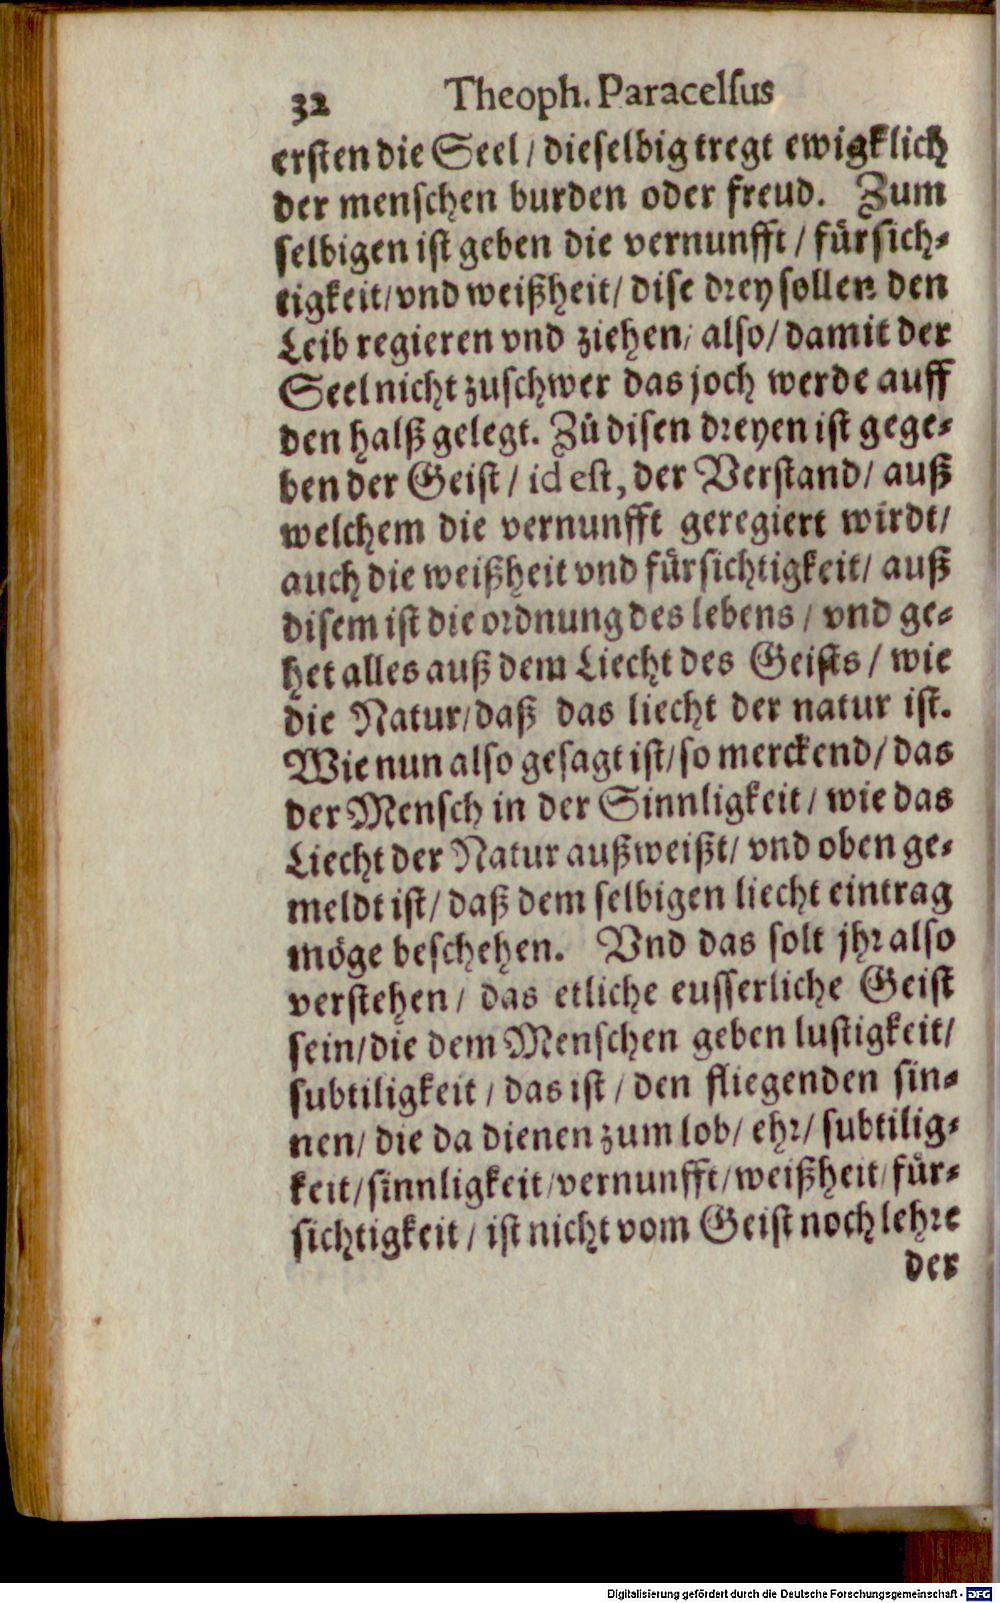 32 Theoph. Paracelsus
ersten die Seel / dieselbig tregt ewigklich
der menschen burden oder freud. Zum
selbigen ist geben die vernunfft / fürsich-
tigkeit / vnd weißheit / dise drey sollen den
Leib regieren vnd ziehen / also / damit der
Seel nicht zuschwer das joch werde auff
den halß gelegt. Zů disen dreyen ist gege-
ben der Geist / id est, der Verstand / auß
welchem die vernunfft geregiert wirdt /
auch die weißheit vnd fürsichtigkeit / auß
disem ist die ordnung des lebens / vnd ge-
het alles auß dem Liecht des Geists / wie
die Natur / daß das liecht der natur ist.
Wie nun also gesagt ist / so merckend / das
der Mensch in der Sinnligkeit / wie das
Liecht der Natur außweißt / vnd oben ge-
meldt ist / daß dem selbigen liecht eintrag
möge beschehen. Vnd das solt jhr also
verstehen / das etliche eusserliche Geist
sein / die dem Menschen geben lustigkeit /
subtiligkeit / das ist / den fliegenden sin-
nen / die da dienen zum lob / ehr / subtilig-
keit / sinnligkeit / vernunfft / weißheit / für-
sichtigkeit / ist nicht vom Geist noch lehre
der
Digitalisierung gefördert durch die Deutsche Forschungsgemeinschaft - DFG